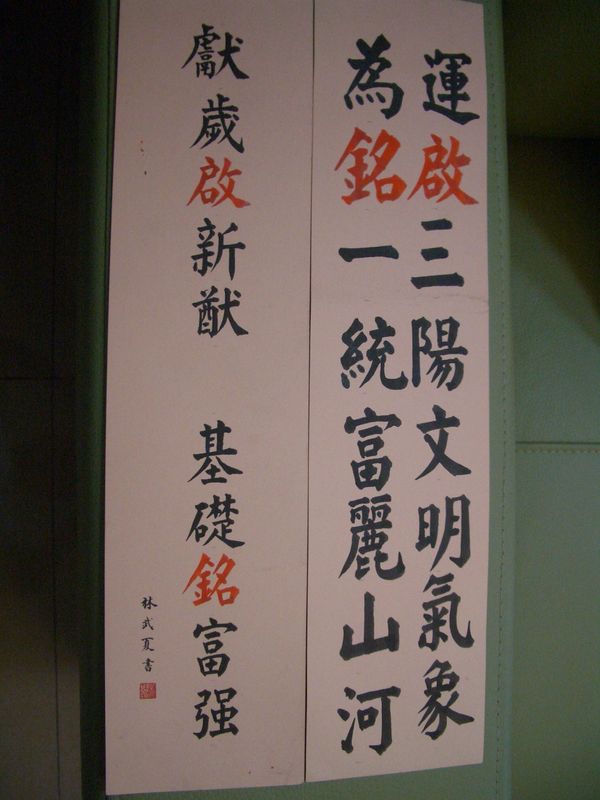 運啟三陽文明氣象
為銘一統富麗山河
獻歲啟新猷 基礎銘富强
林武夏書